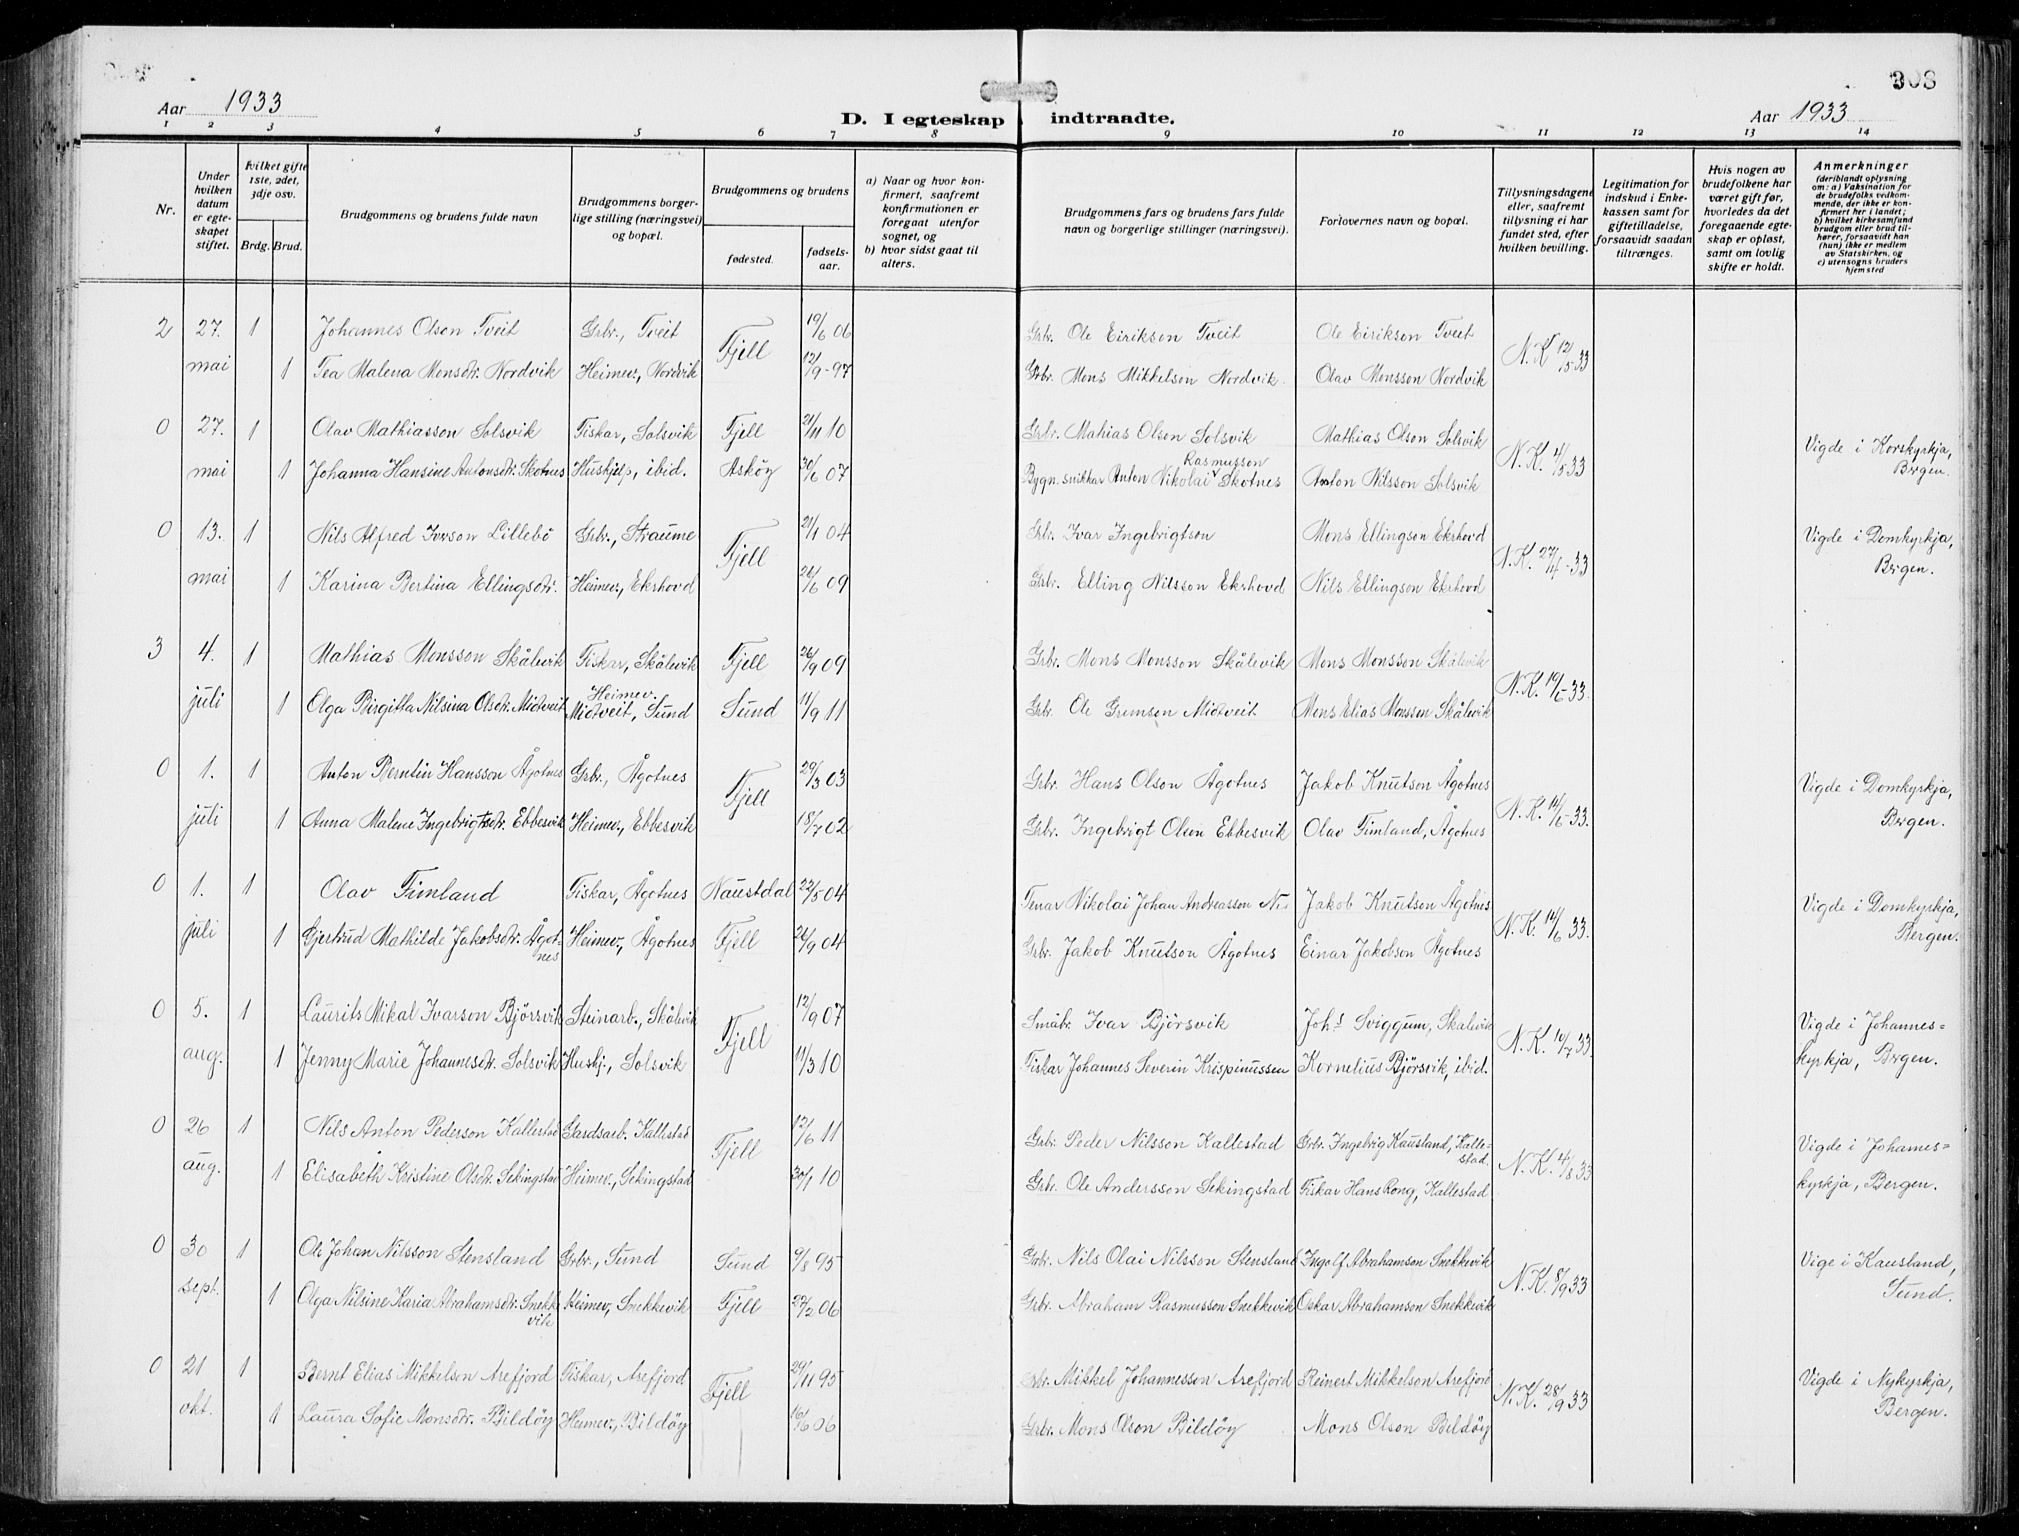 308
Aar 1933
D. I egteskap indtraadte.
Aar 1933
1 2 3 4 5 6 7 8 9 10 11 12 13 14
Nr.
Under hvilken datum er egteskapet stiftet.
Hvilket gifte 1ste, 2det, 3dje osv.
Brdg. Brud.
Brudgommens og brudens fulde navn
Brudgommens borgerlige stilling (næringsvei) og bopæl.
Brudgommens og brudens
fødested.
fødselsaar.
a) Naar og hvor konfirmert, saafremt konfirmationen er foregaat utenfor sognet, og
b) hvor sidst gaat til alters.
Brudgommens fars og brudens fars fulde navn og borgerlige stillinger (næringsvei).
Forlovernes navn og bopæl.
Tillysningsdagene eller, saafremt tillysning ei har fundet sted, efter hvilken bevilling.
Legitimation for indskud i Enkekassen samt for giftetilladelse, forsaavidt saadan tiltrænges.
Hvis nogen av brudefolkene har været gift før, hvorledes da det foregaaende egteskap er opløst, samt om lovlig skifte er holdt.
Anmerkninger (deriblandt oplysning om: a) Vaksination for de brudefolks vedkommende, der ikke er konfirmert her i landet; b) hvilket kirkesamfund brudgom eller brud tilhører, forsaavidt han (hun) ikke er medlem av Statskirken, og c) utensogns bruders hjemsted
2 27. 1 Johannes Olsen Tveit Grbr., Tveit Fjell 19/6 06 Grbr. Ole Eirikson Tveit Ole Eirikson Tveit N.K. 12/5-33
mai 1 Tea Malena Monsdtr. Nordvik Heimev., Nordvik 12/9-97 Grbr. Mons Mikkelson Nordvik Olav Monsson Nordvik
0 27. 1 Olav Mathiasson Solsvik Fiskar, Solsvik Fjell 21/11 10 Grbr. Mahias Olsen Solsvik Mathias Olson Solsvik N.K. 4/5 33 Vigde i Korskyrkja, Bergen.
mai 1 Johanna Hansine Antonsdtr. Skotnes Hushjelp, ibid. Askøy 30/6 07 Bygn. snikkar Anton Nikolai Rasmusson Skotnes Anton Nilsson Solsvik
0 13. 1 Nils Alfred Ivrson Lillebø Grbr., Straume Fjell 21/1 04 Grbr. Ivar Ingebrigtson Mons Ellingson Ekrhovd N.K. 27/4-33 Vigde i Domkyrkja, Bergen.
mai 1 Karina Bertina Ellingsdtr. Heimev., Ekrhovd 26/6 09 Grbr. Elling Nilsson Ekrhovd Nils Ellingson Ekrhovd
3 4. 1 Mathias Monsson Skålevik Fiskar, Skålevik Fjell 26/9 09 Grbr. Mons Monsson Skålevik Mons Monsson Skålevik N.K. 19/6-33.
juli 1 Olga Birgitta Nilsina Olsdtr. Midtveit Heimev. Midtveit, Sund Sund 11/9 11 Grbr. Ole Gremson Midtveit Mons Elias Monsson Skålevik
0 1. 1 Anton Berntin Hansson Ågotnes Grbr., Ågotnes Fjell 29/3 03 Grbr. Hans Olson Ågotnes Jakob Knutson Ågotnes N.K. 14/6-33. Vigde i Domkyrkja, Bergen.
juli 1 Anna Malene Ingebrigtsdtr. Ebbesvik Heimev., Ebbesvik 18/7 02 Grbr. Ingebrigt Olson Ebbesvik Olav Fimland, Ågotnes
0 1. 1 Olav Fimland Fiskar, Ågotnes Naustdal 22/5 04 Tenar Nikolai Johan Andreasson Jakob Knutson Ågotnes N.K. 14/6 33. Vigde i Domkyrkja, Bergen.
juli 1 Gjertrud Mathilde Jakobsdtr. Ågotnes Heimev., Ågotnes Fjell 24/9 04 Grbr. Jakob Knutson Ågotnes Einar Jakobson Ågotnes
0 5. 1 Laurits Mikal Ivarson Bjørsvik Steinarb., Skålevik Fjell 12/9 07 Småbr. Ivar Bjørsvik Johs Sviggum, Skalevik N.K. 14/7 33. Vigde i Johannes=kyrkja, Bergen.
aug. 1 Jenny Marie Johannesdtr. Solsvik Hushj., Solsvik 11/3 10 Fiskar Johannes Severin Krispinussen Kornelius Bjørsvik, ibid.
0 26 1 Nils Anton Pederson Kallestad Gardsarb. Kallestad Fjell 12/6 11 Grbr. Peder Nilsson Kallestad Grbr. Ingebrig Kausland, Kalle=stad. N.K. 4/8 33 Vigde i Johames=kyrkja, Bergen.
aug. 1 Elisabeth Kristine Olsdtr. Sekingstad Heimev., Sekingstad 30/1 10 Grbr. Ole Andersson Sekingstad Fiskar Hans Rong, Kallestad
0 30 1 Ole Johan Nilsson Stensland Grbr., Sund Sund 9/8 95 Grbr. Nils Olai Nilsson Stensland Ingolf Abrahamson Snekkevik N.K. 8/9 33 Vige i Kausland, Sund.
sept. 1 Olga Nilsine Karia Abrahamsdtr. Snekkvik Heimev., Snekkevik Fjell 27/2 06 Grbr. Abraham Rasmusson Snekkevik Oskar Abrahamson Snekkevik
0 21 1 Bernt Elias Mikkelson Arefjord Fiskar, Arefjord Fjell 29/11 95 Grbr. Mikkel Johannesson Arefjord Reinert Mikkelson Arefjord N.K. 28/9 33 Vigde i Nykyrkja, Bergen.
okt. 1 Laura Sofie Monsdtr. Bildøy Heimev., Bildøy 16/6 06 Grbr. Mons Olson Bildøy Mons Olson Bildøy